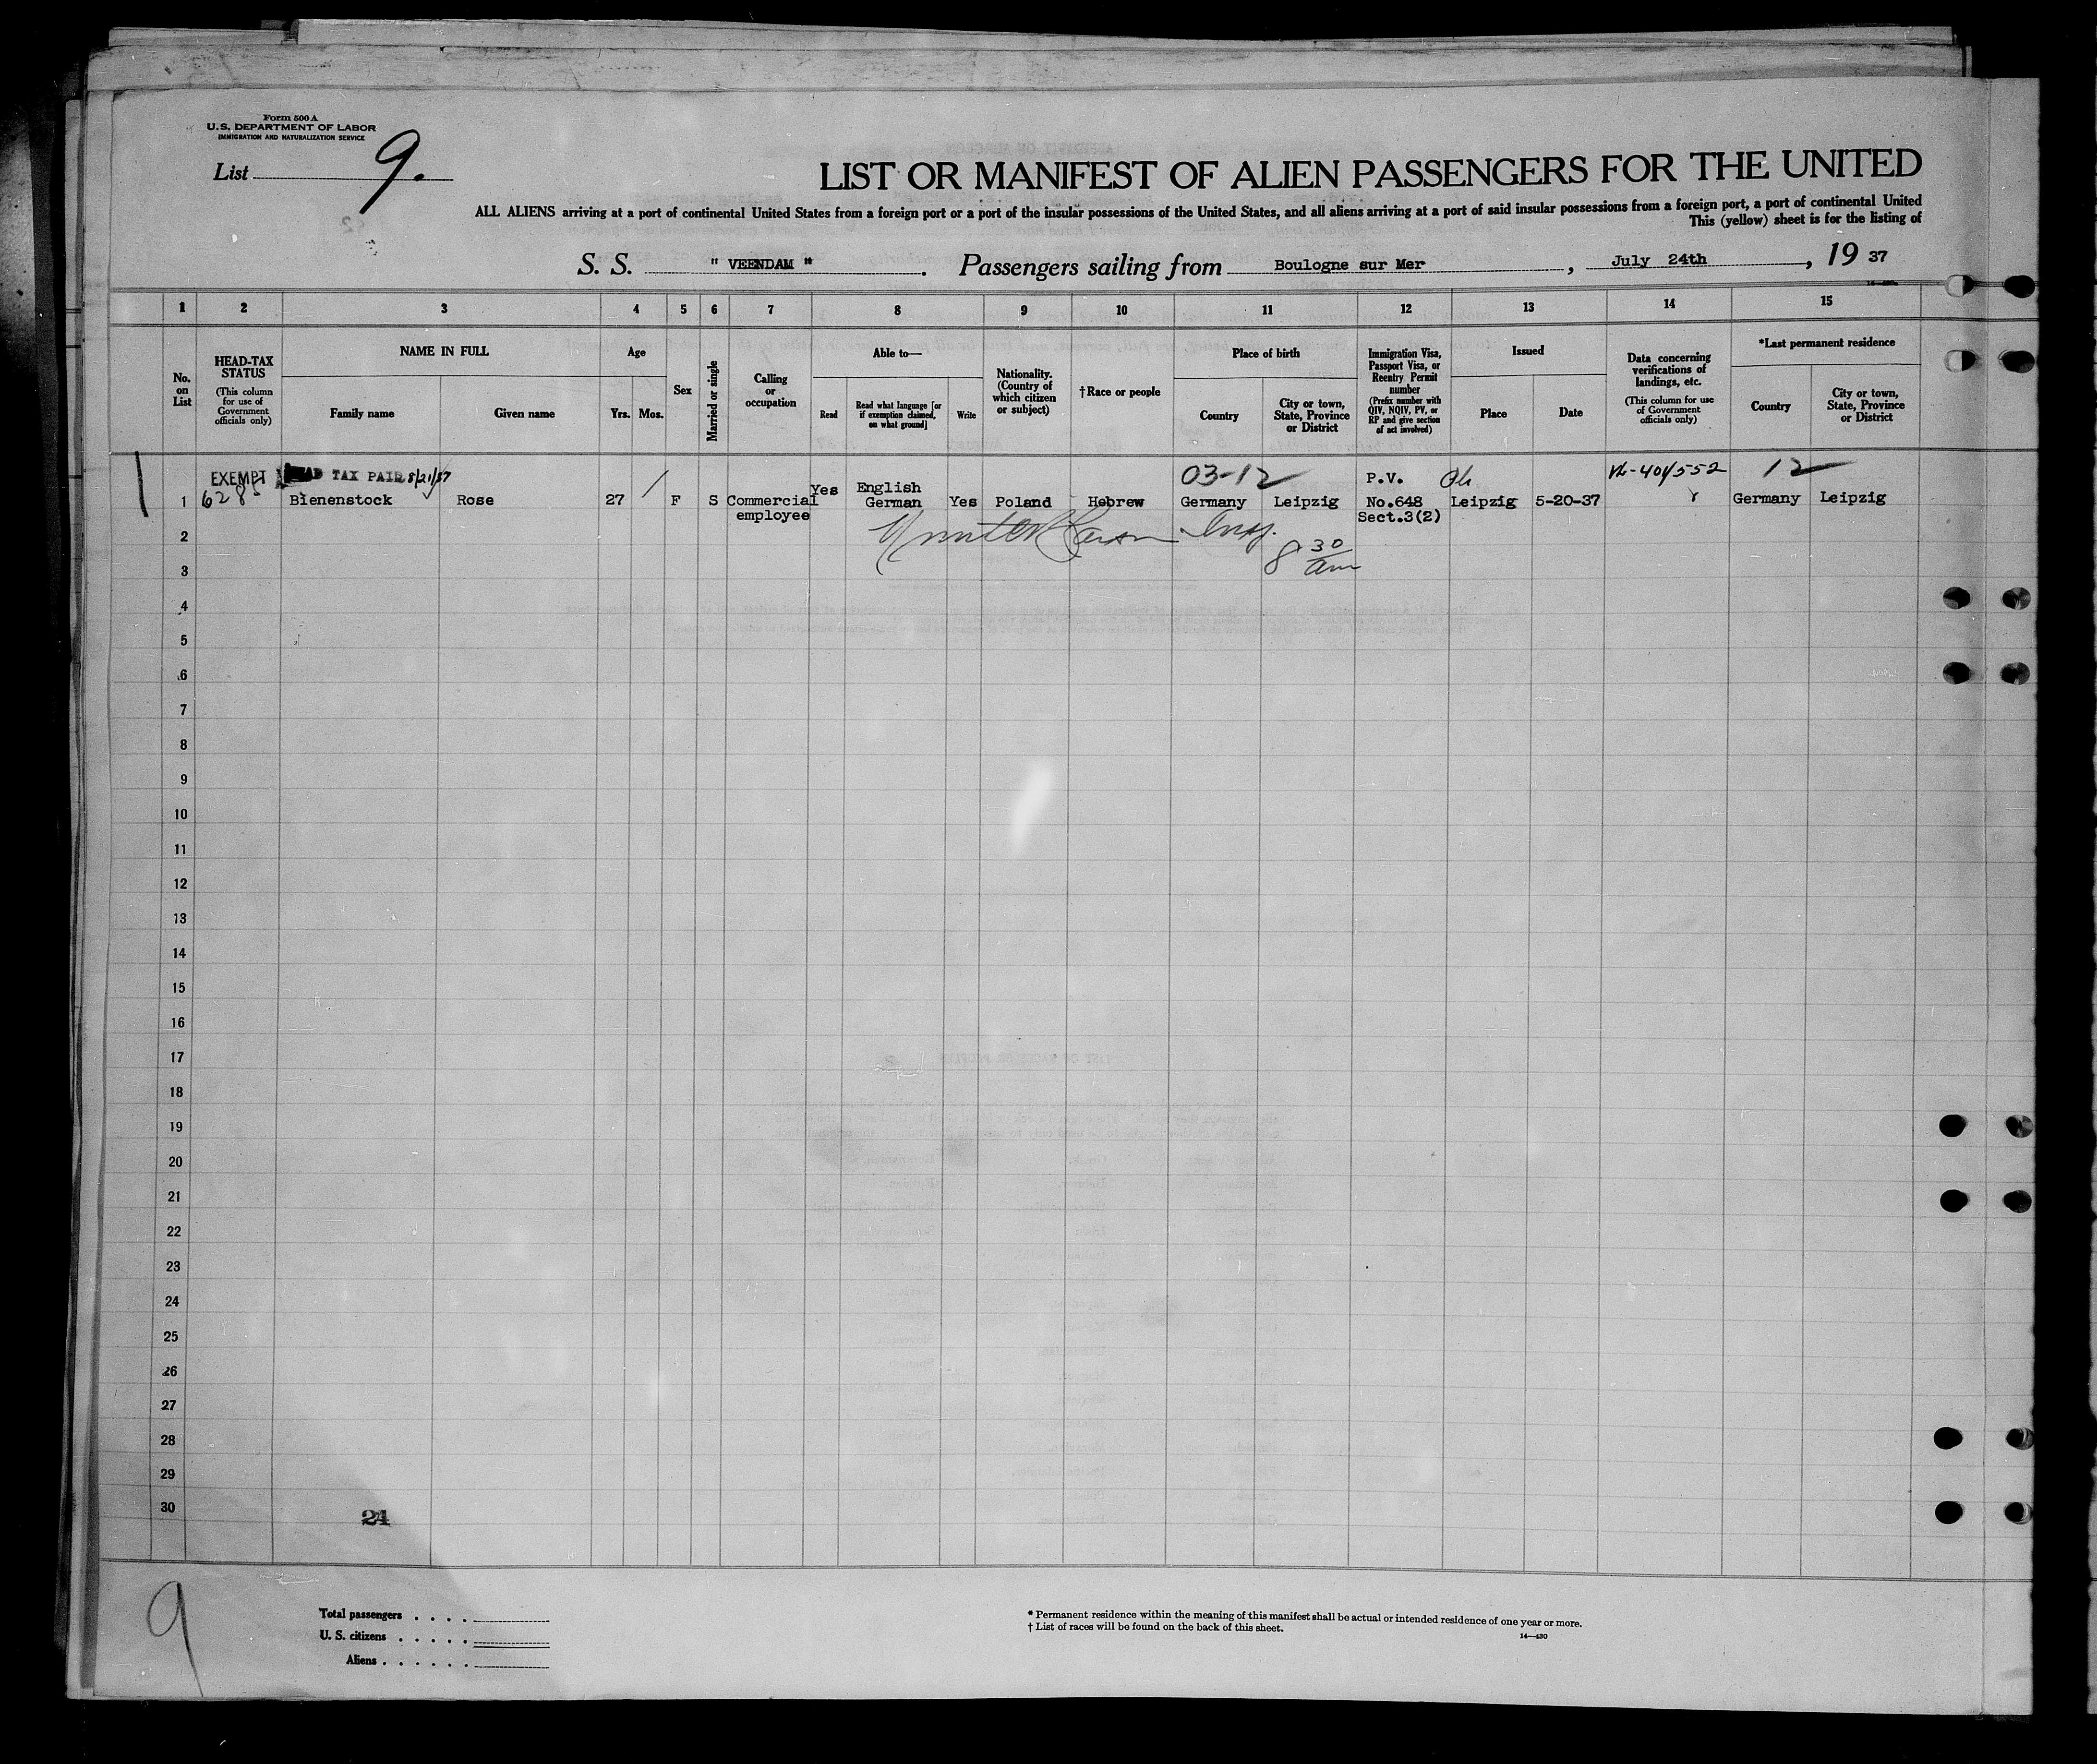 Form 500 A
U.S. DEPARTMENT OF LABOR
IMMIGRATION AND NATURALIZATION SERVICE
List 9.
LIST OR MANIFEST OF ALIEN PASSENGERS FOR THE UNITED
ALL ALIENS arriving at a port of continental United States from a foreign port or a port of the insular possessions of the United States, and all aliens arriving at a port of said insular possessions from a foreign port, a port of continental United
This (yellow) sheet is for the listing of
S. S. " VEENDAM " . Passengers sailing from Boulogne sur Mer , July 24th , 19 37
1 2 3 4 5 6 7 8 9 10 11 12 13 14 15
No. on List
HEAD-TAX STATUS
(This column for use of Government officials only)
NAME IN FULL
Family name
Given name
Age
Yrs. Mos.
Sex
Married or single
Calling or occupation
Able to—
Read
Read what language [or if exemption claimed, on what ground]
Write
Nationality. (Country of which citizen or subject)
† Race or people
Place of birth
Country
City or town, State, Province or District
Immigration Visa, Passport Visa, or Reentry Permit number
(Prefix number with QIV, NQIV, PV, or RP and give section of act involved)
Issued
Place
Date
Data concerning verifications of landings, etc.
(This column for use of Government officials only)
*Last permanent residence
Country
City or town, State, Province or District
EXEMPT HEAD TAX PAID 8/21/37 03-12 P.V. 12
1 Bienenstock Rose 27 F S Commercial employee Yes English German Yes Poland Hebrew Germany Leipzig No.648 Sect.3(2) Leipzig 5-20-37 Germany Leipzig
2
8 30 am
3
4
5
6
7
8
9
10
11
12
13
14
15
16
17
18
19
20
21
22
23
24
25
26
27
28
29
30
24
9
Total passengers . . . .
U. S. citizens . . . . .
Aliens . . . . . .
* Permanent residence within the meaning of this manifest shall be actual or intended residence of one year or more.
† List of races will be found on the back of this sheet.
14—430